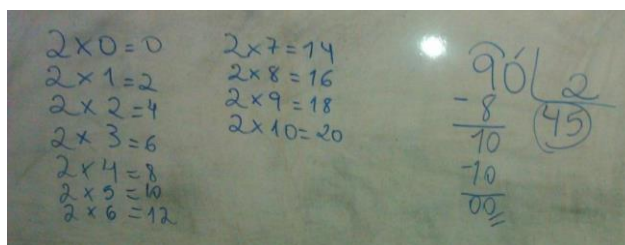 2×0=0
2×1=2
2×2=4
2×3=6
2×4=8
2×5=10
2×6=12
2×7=14
2×8=16
2×9=18
2×10=20
90 2
-8 45
10
-10
00